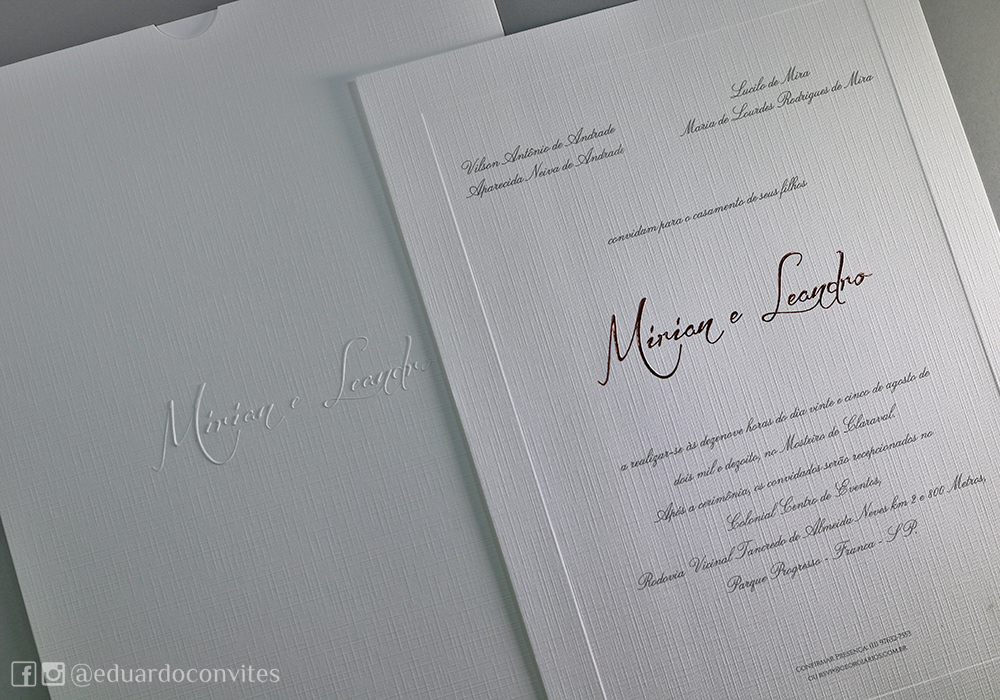 Mirian e Leandro
Vilson Antônio de Andrade
Aparecida Neiva de Andrade
Lucilo de Mira
Maria de Lourdes Rodrigues de Mira
convidam para o casamento de seus filhos
Mirian e Leandro
a realizar-se às dezenove horas do dia vinte e cinco de agosto de
dois mil e dezoito, no Mosteiro de Claraval.
Após a cerimônia, os convidados serão recepcionados no
Colonial Centro de Eventos,
Rodovia Vicinal Tancredo de Almeida Neves km 2 e 800 Metros,
Parque Progresso - Franca - S.P.
CONFIRMAR PRESENÇA: (11) 97632-7553
OU
@eduardoconvites